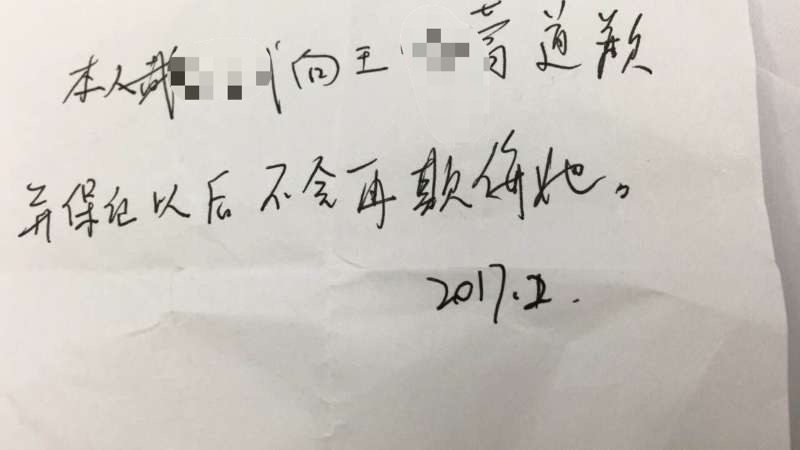 本人戴 向王 道歉
并保证以后不会再欺侮她。
2017.2.